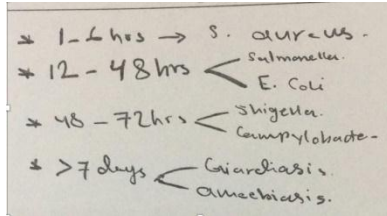 * 1-6 hrs → S. aureus.
* 12-48 hrs < Salmonella.
E. Coli
* 48-72 hrs < Shigella.
Campylobacte-
* >7 days < Giardiasis.
amoebiasis.